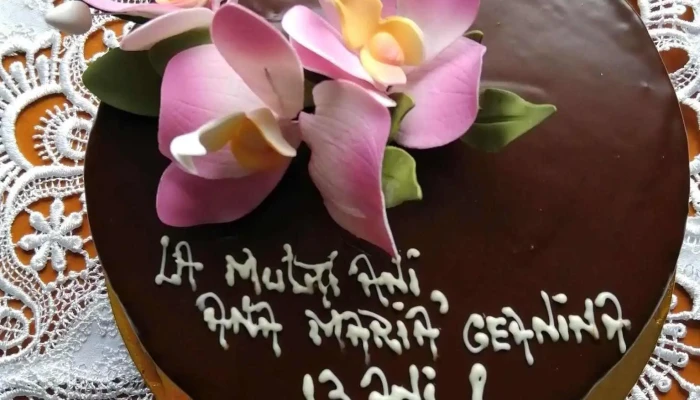 LA MULȚI ANI,
ANA MARIA, GEANINA
13 ANI !